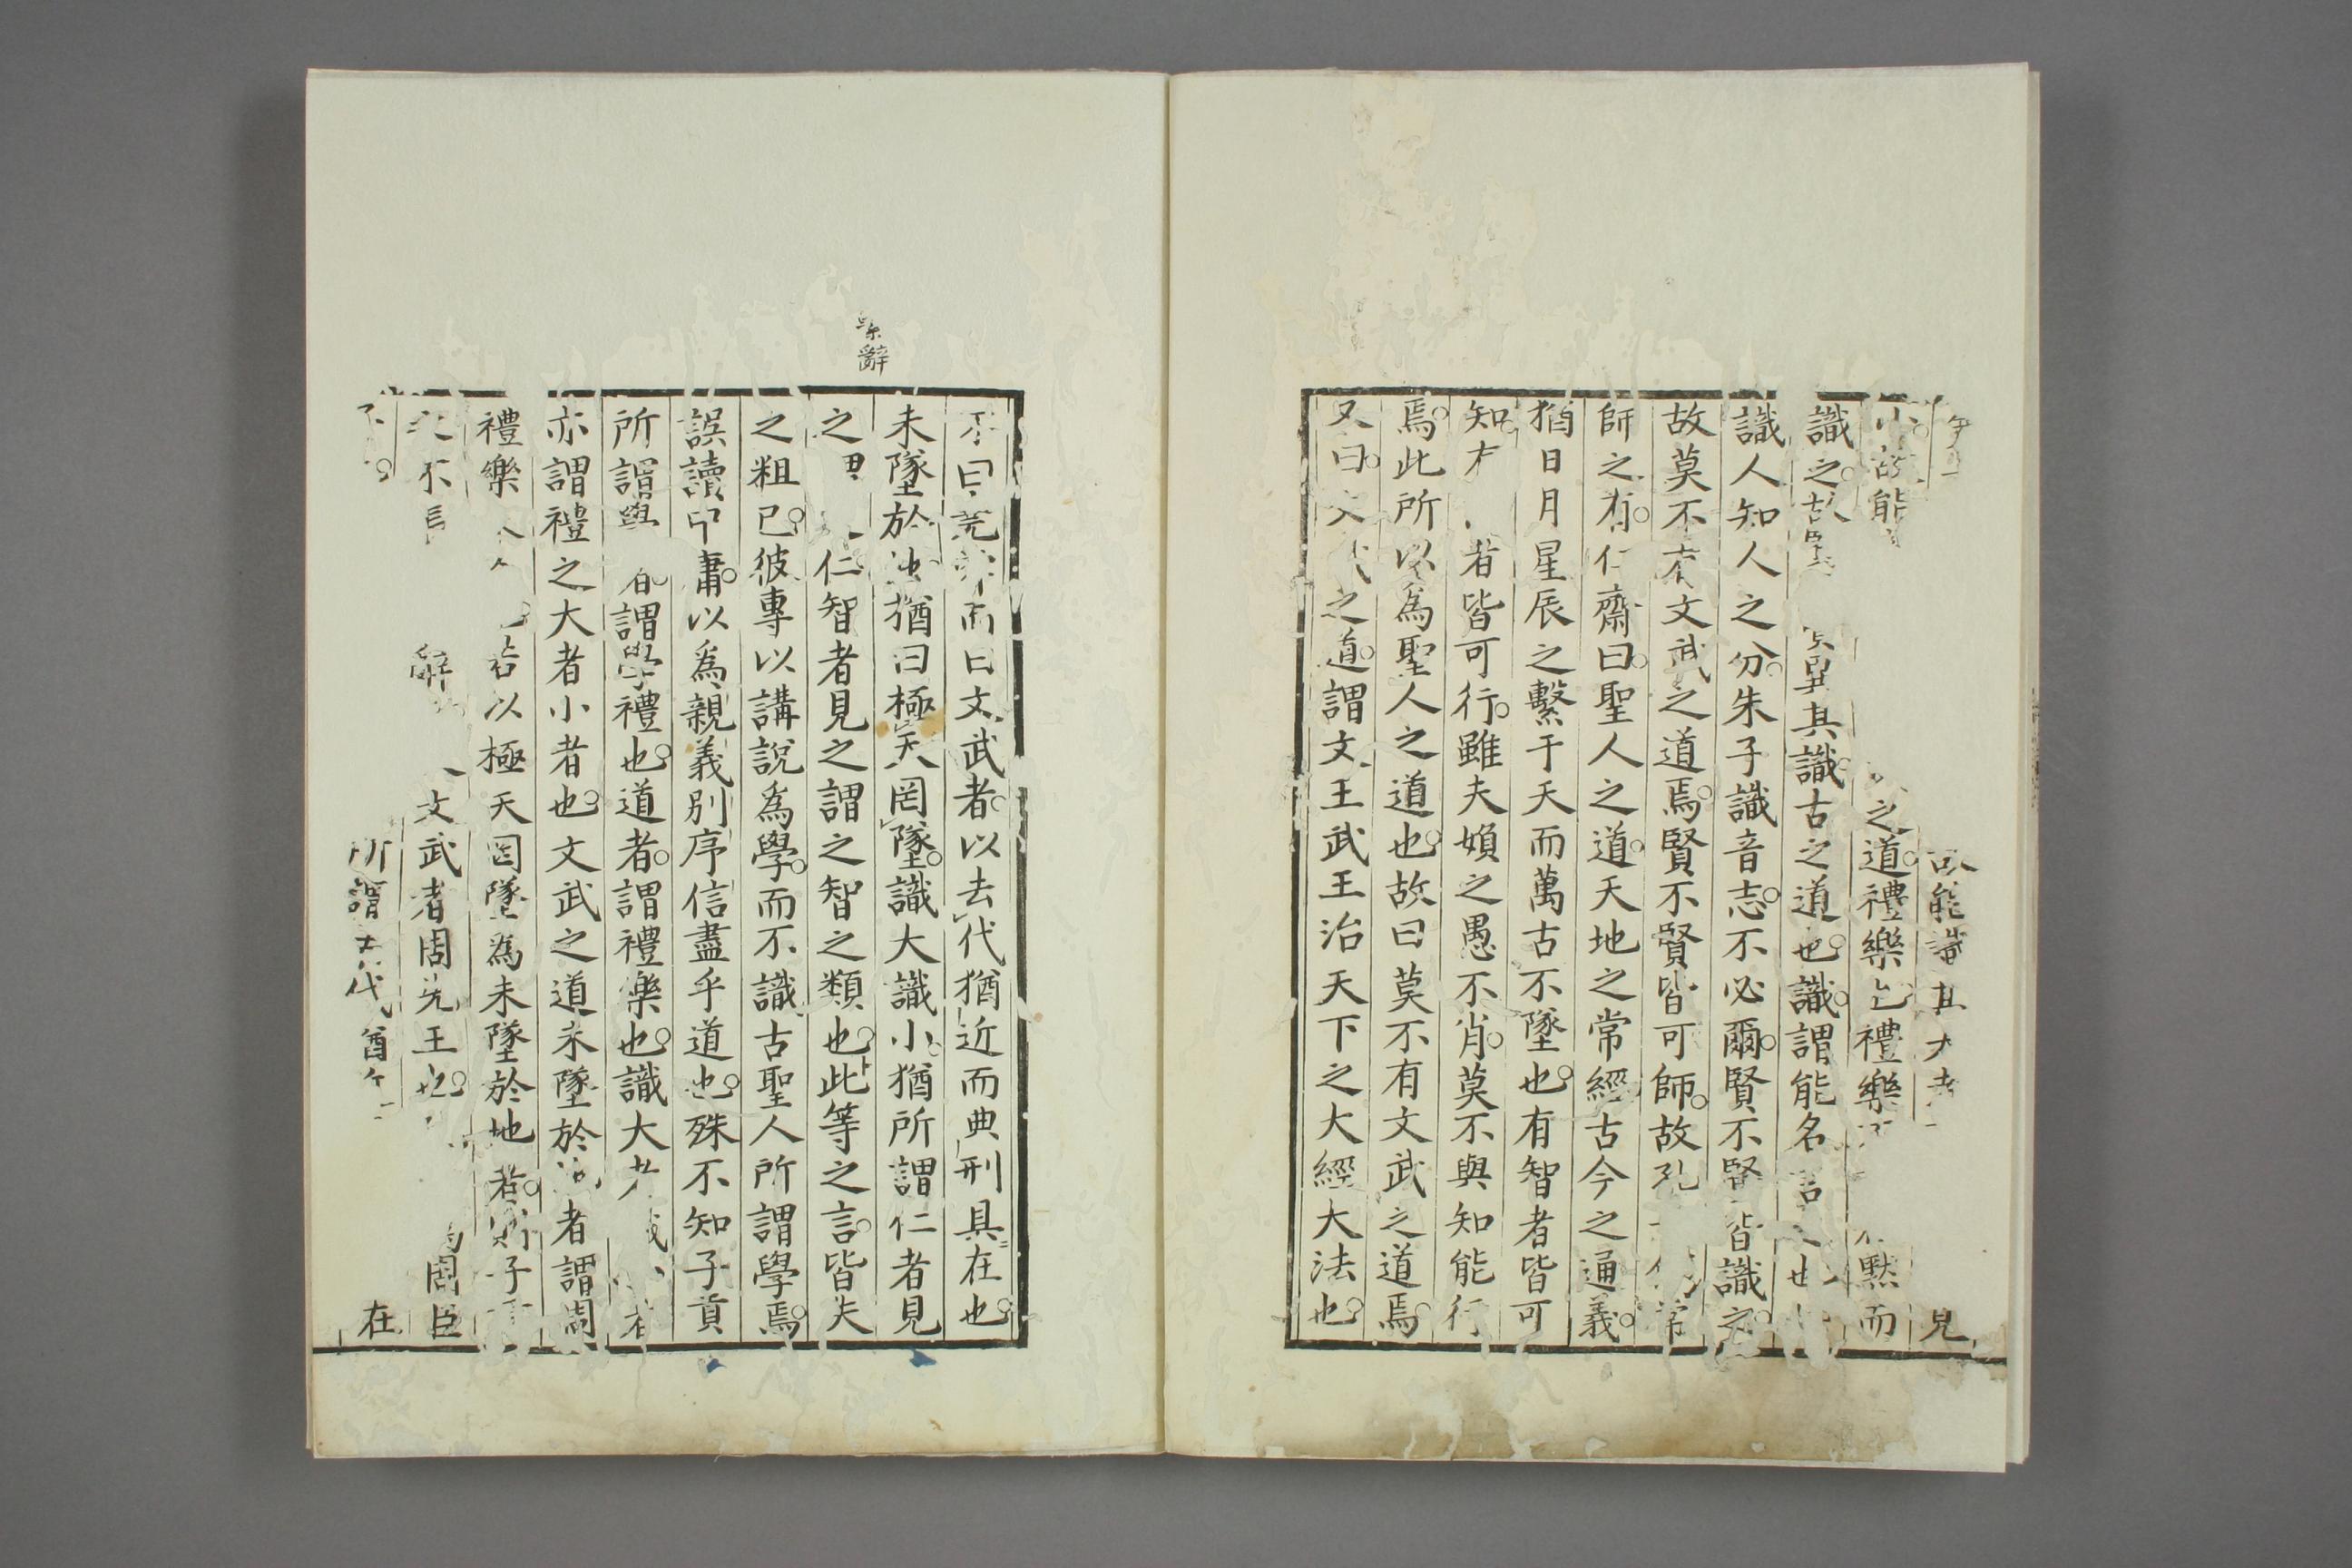 能識其大者 見
小故能 之道禮樂也禮樂 默而
識之故 冀其識古之道也識謂能名言之也
識人知人之分朱子識音志不必爾賢不賢皆識之
故莫不有文武之道焉賢不賢皆可師故孔 常
師之有仁齋曰聖人之道天地之常經古今之通義
猶日月星辰之繫于天而萬古不墜也有智者皆可
知 者皆可行雖夫婦之愚不肖莫不與知能行
焉此所以為聖人之道也故曰莫不有文武之道焉
又曰文武之道謂文王武王治天下之大經大法也
不曰堯舜而曰文武者以去代猶近而典刑具在也
未墜於地猶曰極天罔墜識大識小猶所謂仁者見
繫辭
之 仁智者見之謂之智之類也此等之言皆失
之粗已彼專以講說為學而不識古聖人所謂學焉
誤讀中庸以為親義別序信盡乎道也殊不知子貢
所謂學者謂學禮也道者謂禮樂也識大者識小者
亦謂禮之大者小者也文武之道未墜於地者謂周
禮樂 若以極天罔墜為未墜於地者則子貢
不 辭 文武者周先王也 為周臣
所謂去代猶 在